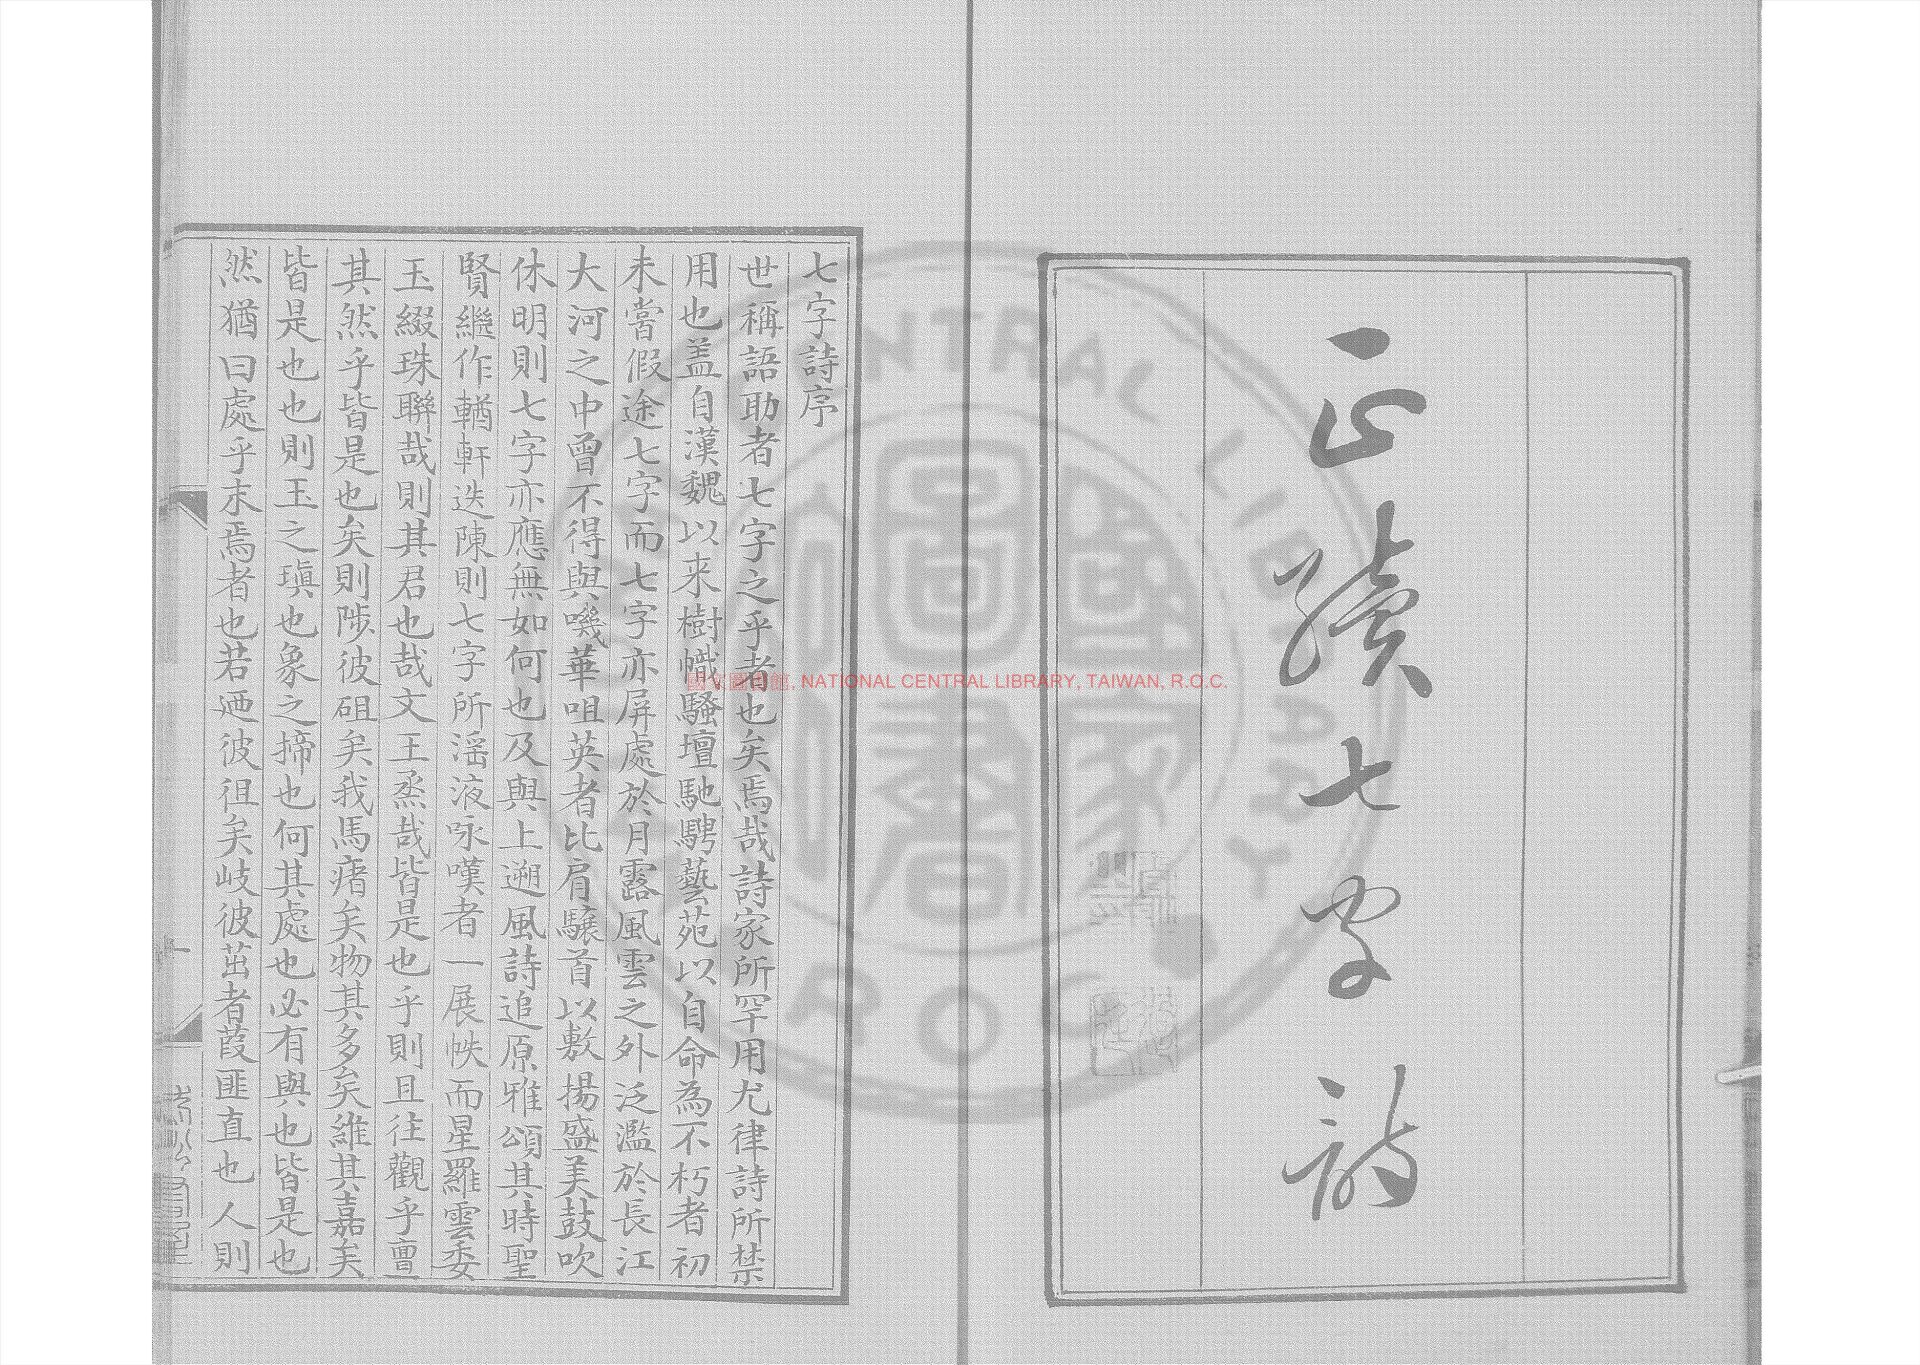 正續七字詩
七字詩序
世稱語助者七字之乎者也矣焉哉詩家所罕用尤律詩所禁
用也盖自漢魏以来樹幟騷壇馳騁藝苑以自命為不朽者初
未嘗假途七字而七字亦屏處於月露風雲之外泛濫於長江
大河之中曾不得與嘰華咀英者比肩驤首以敷揚盛美鼓吹
休明則七字亦應無如何也及與上遡風詩追原雅頌其時聖
賢繼作輶軒迭陳則七字所滛液咏嘆者一展帙而星羅雲委
玉綴珠聯哉則其君也哉文王烝哉皆是也乎則且往觀乎亶
其然乎皆是也矣則陟彼砠矣我馬瘏矣物其多矣維其嘉矣
皆是也也則玉之瑱也象之揥也何其處也必有與也皆是也
然猶曰處乎末焉者也若迺彼徂矣岐彼茁者葭匪直也人則
國家圖書館, NATIONAL CENTRAL LIBRARY, TAIWAN, R.O.C.
國家圖書
NATIONAL CENTRAL LIBRARY
R O C
一